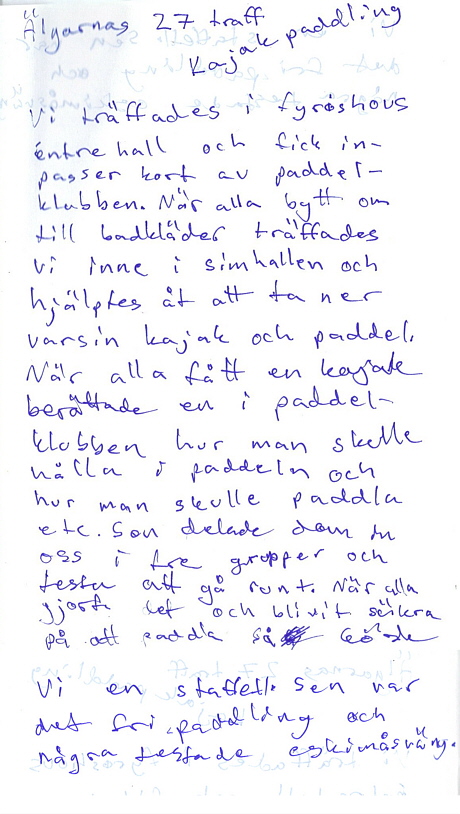 Älgarnas 27 träff
Kajakpaddling
Vi träffades i fyrishovs
éntrehall och fick in-
passer kort av paddel-
klubben. När alla bytt om
till badkläder träffades
vi inne i simhallen och
hjälptes åt att ta ner
varsin kajak och paddel.
När alla fått en kajak
berättade en i paddel-
klubben hur man skulle
hålla i paddeln och
hur man skulle paddla
etc. Sen delade dom in
oss i tre grupper och
testa att gå runt. När alla
gjort det och blivit säkra
på att paddla så körde
vi en stafett. Sen var
det fri paddling och
några testade eskimåsväng.